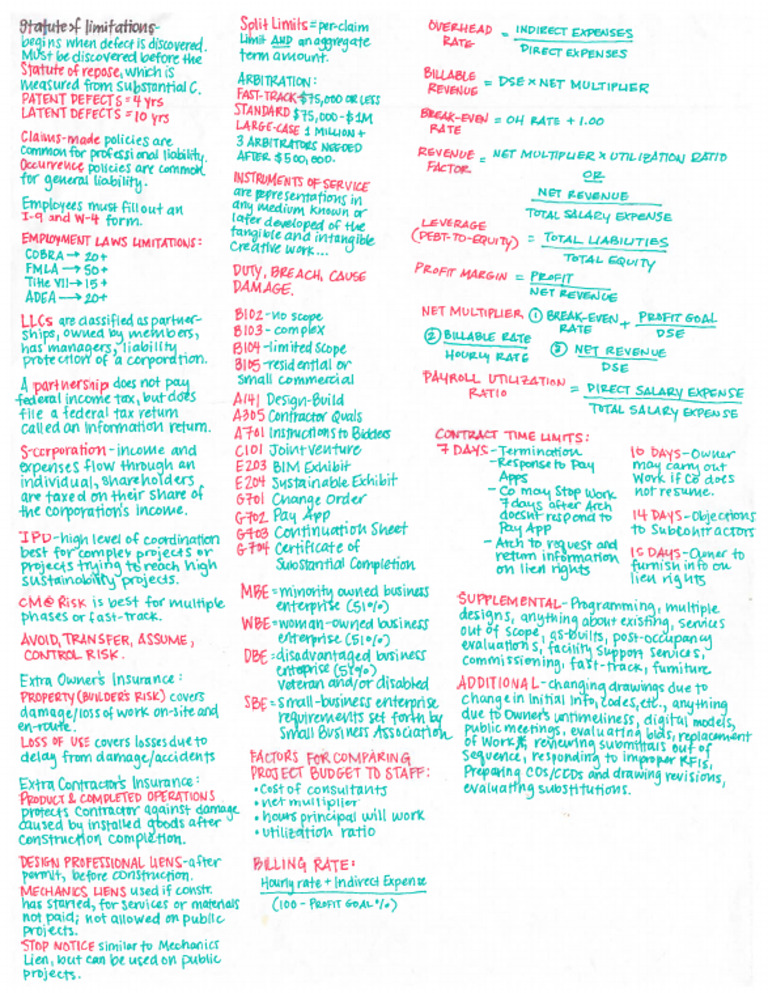 Statute of limitations-
begins when defect is discovered.
Must be discovered before the
Statute of repose, which is
measured from Substantial C.
PATENT DEFECTS = 4 yrs
LATENT DEFECTS = 10 yrs
Claims-made policies are
common for professional liability.
Occurrence policies are common
for general liability.
Employees must fill out an
I-9 and W-4 form.
EMPLOYMENT LAWS LIMITATIONS:
COBRA → 20+
FMLA → 50+
Title VII → 15+
ADEA → 20+
LLCs are classified as partner-
ships, owned by members,
has managers, liability
protection of a corporation.
A partnership does not pay
federal income tax, but does
file a federal tax return
called an information return.
S-corporation - income and
expenses flow through an
individual, shareholders
are taxed on their share of
the corporation's income.
IPD-high level of coordination
best for complex projects or
projects trying to reach high
sustainability projects.
CM@Risk is best for multiple
phases or fast-track.
AVOID, TRANSFER, ASSUME,
CONTROL RISK.
Extra Owner's Insurance:
PROPERTY (BUILDER'S RISK) covers
damage/loss of work on-site and
en-route.
LOSS OF USE covers losses due to
delay from damage/accidents
Extra Contractor's Insurance:
PRODUCT & COMPLETED OPERATIONS
protects Contractor against damage
caused by installed goods after
construction completion.
DESIGN PROFESSIONAL LIENS-after
permit, before construction.
MECHANICS LIENS used if constr.
has started, for services or materials
not paid; not allowed on public
projects.
STOP NOTICE similar to Mechanics
Lien, but can be used on public
projects.
Split Limits = per-claim
limit AND an aggregate
term amount.
ARBITRATION:
FAST-TRACK $75,000 OR LESS
STANDARD $75,000 - $1M
LARGE-CASE 1 MILLION +
3 ARBITRATORS NEEDED
AFTER $500,000.
INSTRUMENTS OF SERVICE
are representations in
any medium known or
later developed of the
tangible and intangible
Creative work...
DUTY, BREACH, CAUSE
DAMAGE.
B102 - no scope
B103 - complex
B104 - limited scope
B105 - residential or
small commercial
A141 Design-Build
A305 Contractor Quals
A701 Instructions to Bidders
C101 Joint Venture
E203 BIM Exhibit
E204 Sustainable Exhibit
G701 Change Order
G702 Pay App
G703 Continuation Sheet
G704 Certificate of
Substantial Completion
MBE = minority owned business
enterprise (51%)
WBE = woman-owned business
enterprise (51%)
DBE = disadvantaged business
enterprise (51%)
veteran and/or disabled
SBE = small-business enterprise
requirements set forth by
Small Business Association
FACTORS FOR COMPARING
PROJECT BUDGET TO STAFF:
• Cost of consultants
• net multiplier
• hours principal will work
• utilization ratio
BILLING RATE:
Hourly rate + Indirect Expense
(100 - PROFIT GOAL %)
OVERHEAD RATE = INDIRECT EXPENSES
DIRECT EXPENSES
BILLABLE REVENUE = DSE × NET MULTIPLIER
BREAK-EVEN RATE = OH RATE + 1.00
REVENUE FACTOR = NET MULTIPLIER × UTILIZATION RATIO
OR
NET REVENUE
TOTAL SALARY EXPENSE
LEVERAGE (DEBT-TO-EQUITY) = TOTAL LIABILITIES
TOTAL EQUITY
PROFIT MARGIN = PROFIT
NET REVENUE
NET MULTIPLIER ① BREAK-EVEN RATE + PROFIT GOAL
DSE
② BILLABLE RATE
HOURLY RATE
③ NET REVENUE
DSE
PAYROLL UTILIZATION RATIO = DIRECT SALARY EXPENSE
TOTAL SALARY EXPENSE
CONTRACT TIME LIMITS:
7 DAYS - Termination
- Response to Pay
Apps
- Co may Stop Work
7 days after Arch
doesnt respond to
Pay App
- Arch to request and
return information
on lien rights
10 DAYS-Owner
may carry out
Work if Co does
not resume.
14 DAYS-Objections
to Subcontractors
15 DAYS-Owner to
furnish info on
lien rights
SUPPLEMENTAL - Programming, multiple
designs, anything about existing, services
out of scope, as-builts, post-occupancy
evaluations, facility support services,
commissioning, fast-track, furniture
ADDITIONAL - changing drawings due to
change in Initial Info, codes, etc., anything
due to Owner's untimeliness, digital models,
public meetings, evaluating bids, replacement
of Work, reviewing submittals out of
sequence, responding to improper RFIs,
Preparing COs/CCDs and drawing revisions,
evaluating substitutions.